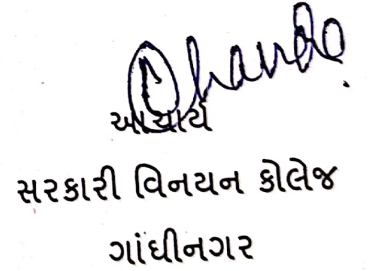 આચાર્ય
સરકારી વિનયન કોલેજ
ગાંધીનગર